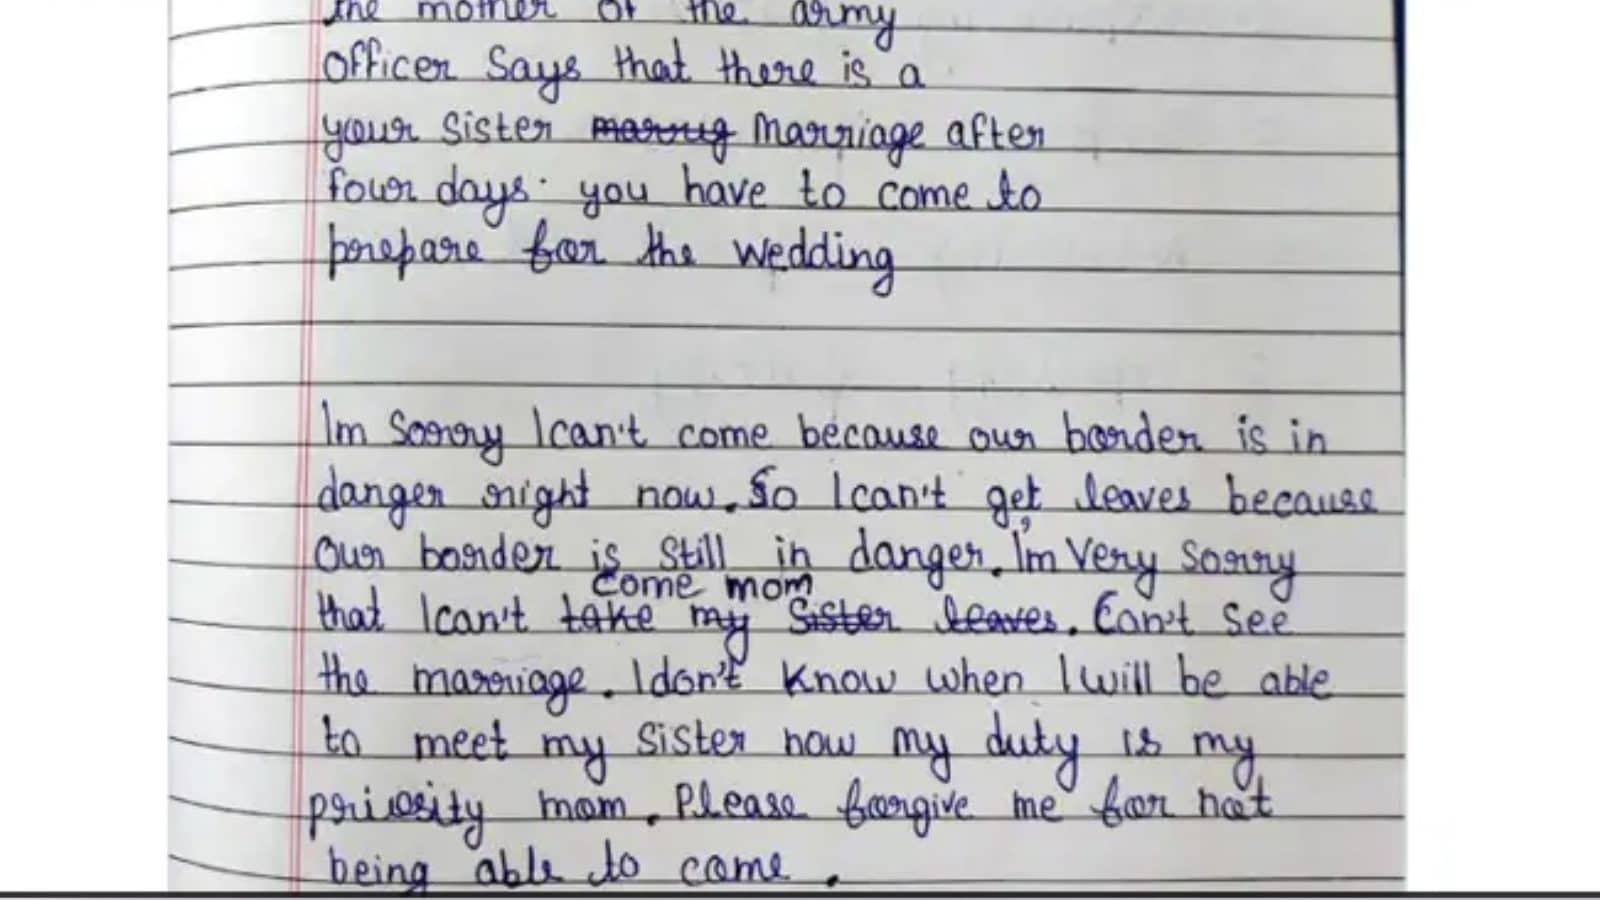 the mother of the army
officer says that there is a
your sister marrug marriage after
four days. you have to come to
prepare for the wedding
Im sorry I can't come because our border is in
danger right now. So I can't get leaves because
our border is still in danger. I'm very sorry
come mom
that I can't take my sister leaves. Can't see
the marriage. I don't know when I will be able
to meet my sister now my duty is my
priority mom. Please forgive me for not
being able to come.